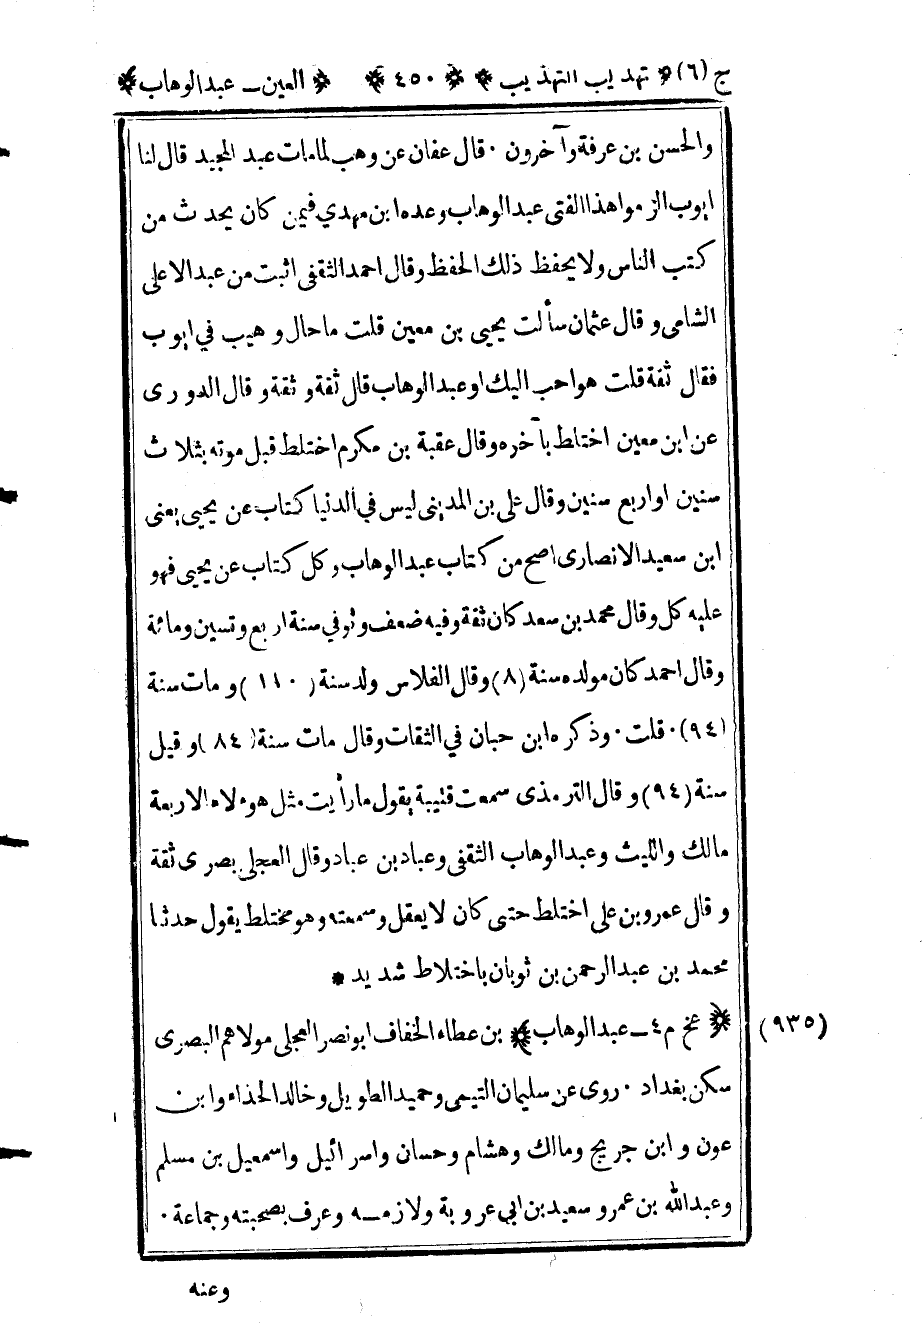 ج (٦) تهذيب التهذيب ٤٥٠ العين ــ عبدالوهاب
والحسن بن عرفة وآخرون ٠ قال عفان عن وهب لما مات عبد المجيد قال لنا
ايوب الزموا هذا الفتى عبد الوهاب وعده ابن مهدي فيمن كان يحدث من
كتب الناس ولا يحفظ ذلك الحفظ وقال احمد الثقفى اثبت من عبد الاعلى
الشامى وقال عثمان سألت يحيى بن معين قلت ما حال وهيب في ايوب
فقال ثقة قلت هو احب اليك او عبد الوهاب قال ثقة وثقة وقال الدورى
عن ابن معين اختلط بآخره وقال عقبة بن مكرم اختلط قبل موته بثلاث
سنين او اربع سنين وقال على بن المدينى ليس في الدنيا كتاب عن يحيى يعنى
ابن سعيد الانصارى اصح من كتاب عبد الوهاب وكل كتاب عن يحيى فهو
عليه كل وقال محمد بن سعد كان ثقة وفيه ضعف وتوفي سنة اربع وتسين ومائة
وقال احمد كان مولده سنة (٨) وقال الفلاس ولد سنة (١١٠) ومات سنة
(٩٤) ٠ قلت ٠ وذكره ابن حبان في الثقات وقال مات سنة (٨٤) وقيل
سنة (٩٤) وقال الترمذى سمعت قتيبة يقول ما رأيت مثل هؤلاء الاربعة
مالك والليث وعبد الوهاب الثقفى وعباد بن عباد وقال العجلى بصرى ثقة
وقال عمرو بن على اختلط حتى كان لا يعقل وسمعته وهو مختلط يقول حدثنا
محمد بن عبد الرحمن بن ثوبان باختلاط شديد *
(٩٣٥) ﴿ عخ م ٤ ــ عبد الوهاب ﴾ بن عطاء الخفاف ابو نصر العجلى مولاهم البصرى
سكن بغداد ٠ روى عن سليمان التيمى وحميد الطويل وخالد الحذاء وابن
عون وابن جريج ومالك وهشام وحسان واسرائيل واسمعيل بن مسلم
وعبد الله بن عمر وسعيد بن ابي عروبة ولازمه وعرف بصحبته وجماعة ٠
وعنه